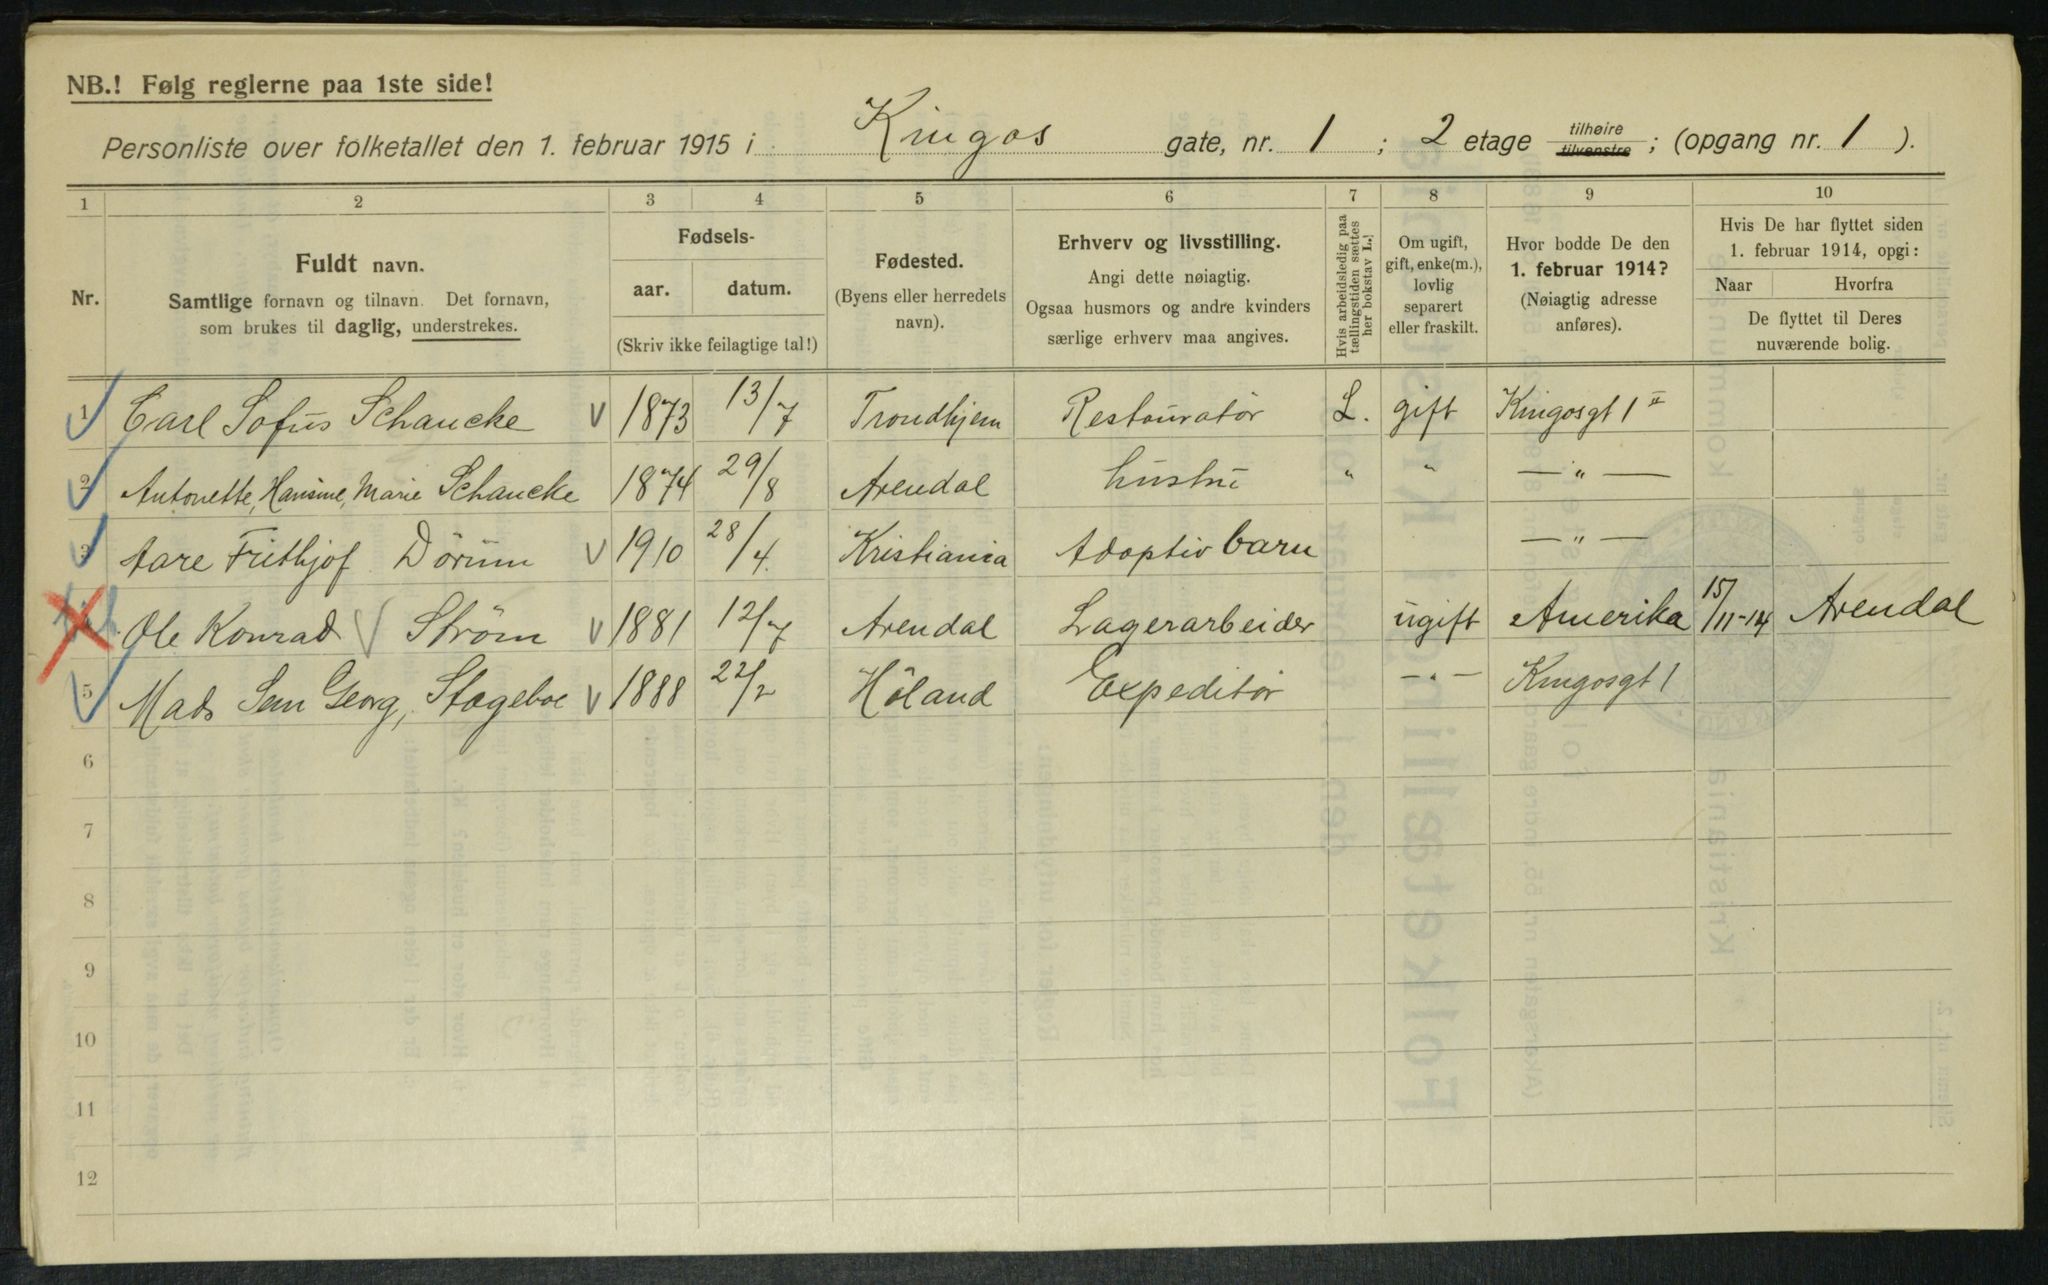 NB.! Følg reglerne paa 1ste side!
Personliste over folketallet den 1. februar 1915 i Kingos gate, nr. 1 ; 2 etage tilhøire tilvenstre ; (opgang nr. 1 ).
1 2 3 4 5 6 7 8 9 10
Nr. Fuldt navn. Samtlige fornavn og tilnavn. Det fornavn, som brukes til daglig, understrekes.
Fødsels- aar. datum. (Skriv ikke feilagtige tal!)
Fødested. (Byens eller herredets navn).
Erhverv og livsstilling. Angi dette nøiagtig. Ogsaa husmors og andre kvinders særlige erhverv maa angives.
Hvis arbeidsledig paa tællingstiden sættes her bokstav L.!
Om ugift, gift, enke(m.), lovlig separert eller fraskilt.
Hvor bodde De den 1. februar 1914? (Nøiagtig adresse anføres).
Hvis De har flyttet siden 1. februar 1914, opgi: Naar Hvorfra De flyttet til Deres nuværende bolig.
1 Carl Sofus Schancke 1873 13/7 Trondhjem Restauratør L. gift Kingosgt 1 II
2 Antonette, Hansine, Marie Schancke 1874 29/8 Arendal hustru " " — " —
3 Aare Frithjof Dörum 1910 28/4. Kristiania Adoptiv barn — " —
4 Ole Konrad Ström 1881 12/7 Arendal Lagerarbeider ugift Amerika 15/11-14 Arendal
5 Mads Sem Georg, Stageboe 1888 22/2 Höland Expeditör — " — Kingosgt 1
6
7
8
9
10
11
12